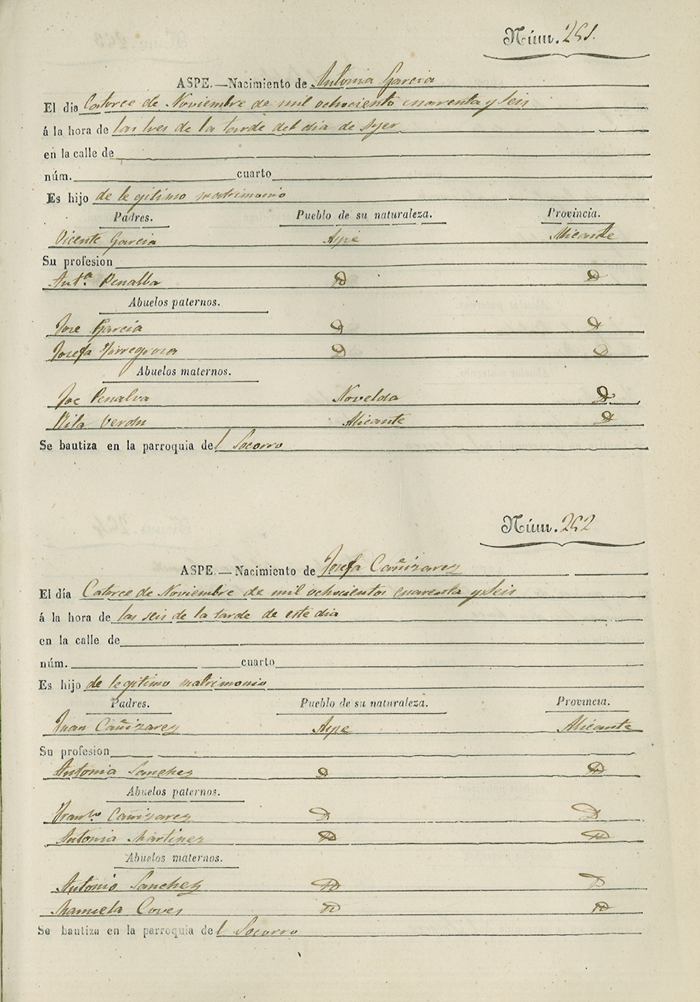 Núm. 251.
ASPE.—Nacimiento de Antonia Garcia
El dia Catorce de Noviembre de mil ochociento cuarenta y seis
á la hora de las tres de la tarde del dia de Ayer
en la calle de
núm. cuarto
Es hijo de legitimo matrimonio
Padres. Pueblo de su naturaleza. Provincia.
Vicente Garcia Aspe Alicante
Su profesion
Antª Penalba D D
Abuelos paternos.
Jose Garcia D D
Josefa Torregrosa D D
Abuelos maternos.
Joe Penalva Novelda D
Rita Veron Alicante D
Se bautiza en la parroquia del Socorro
Núm. 252
ASPE.—Nacimiento de Josefa Cañizares
El día Catorce de Noviembre de mil ochocientos cuarenta y seis
á la hora de las seis de la tarde de este dia
en la calle de
núm. cuarto
Es hijo de legitimo matrimonio
Padres. Pueblo de su naturaleza. Provincia.
Juan Cañizares Aspe Alicante
Su profesion
Antonia Sanchez D D
Abuelos paternos.
Franco Cañizares D D
Antonia Martinez D D
Abuelos maternos.
Antonio Sanchez D D
Manuela Coves D D
Se bautiza en la parroquia del Socorro